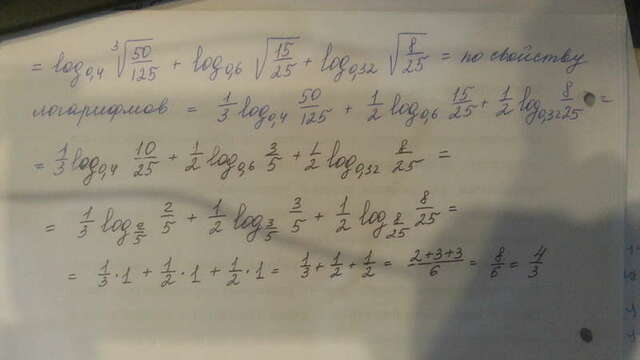 = log₀,₄ ∛(50/125) + log₀,₆ √(15/25) + log₀,₃₂ √(8/25) = по свойству
логарифмов = 1/3 log₀,₄ 50/125 + 1/2 log₀,₆ 15/25 + 1/2 log₀,₃₂ 8/25 =
= 1/3 log₀,₄ 10/25 + 1/2 log₀,₆ 3/5 + 1/2 log₀,₃₂ 8/25 =
= 1/3 log_(2/5) 2/5 + 1/2 log_(3/5) 3/5 + 1/2 log_(8/25) 8/25 =
= 1/3 · 1 + 1/2 · 1 + 1/2 · 1 = 1/3 + 1/2 + 1/2 = (2+3+3)/6 = 8/6 = 4/3